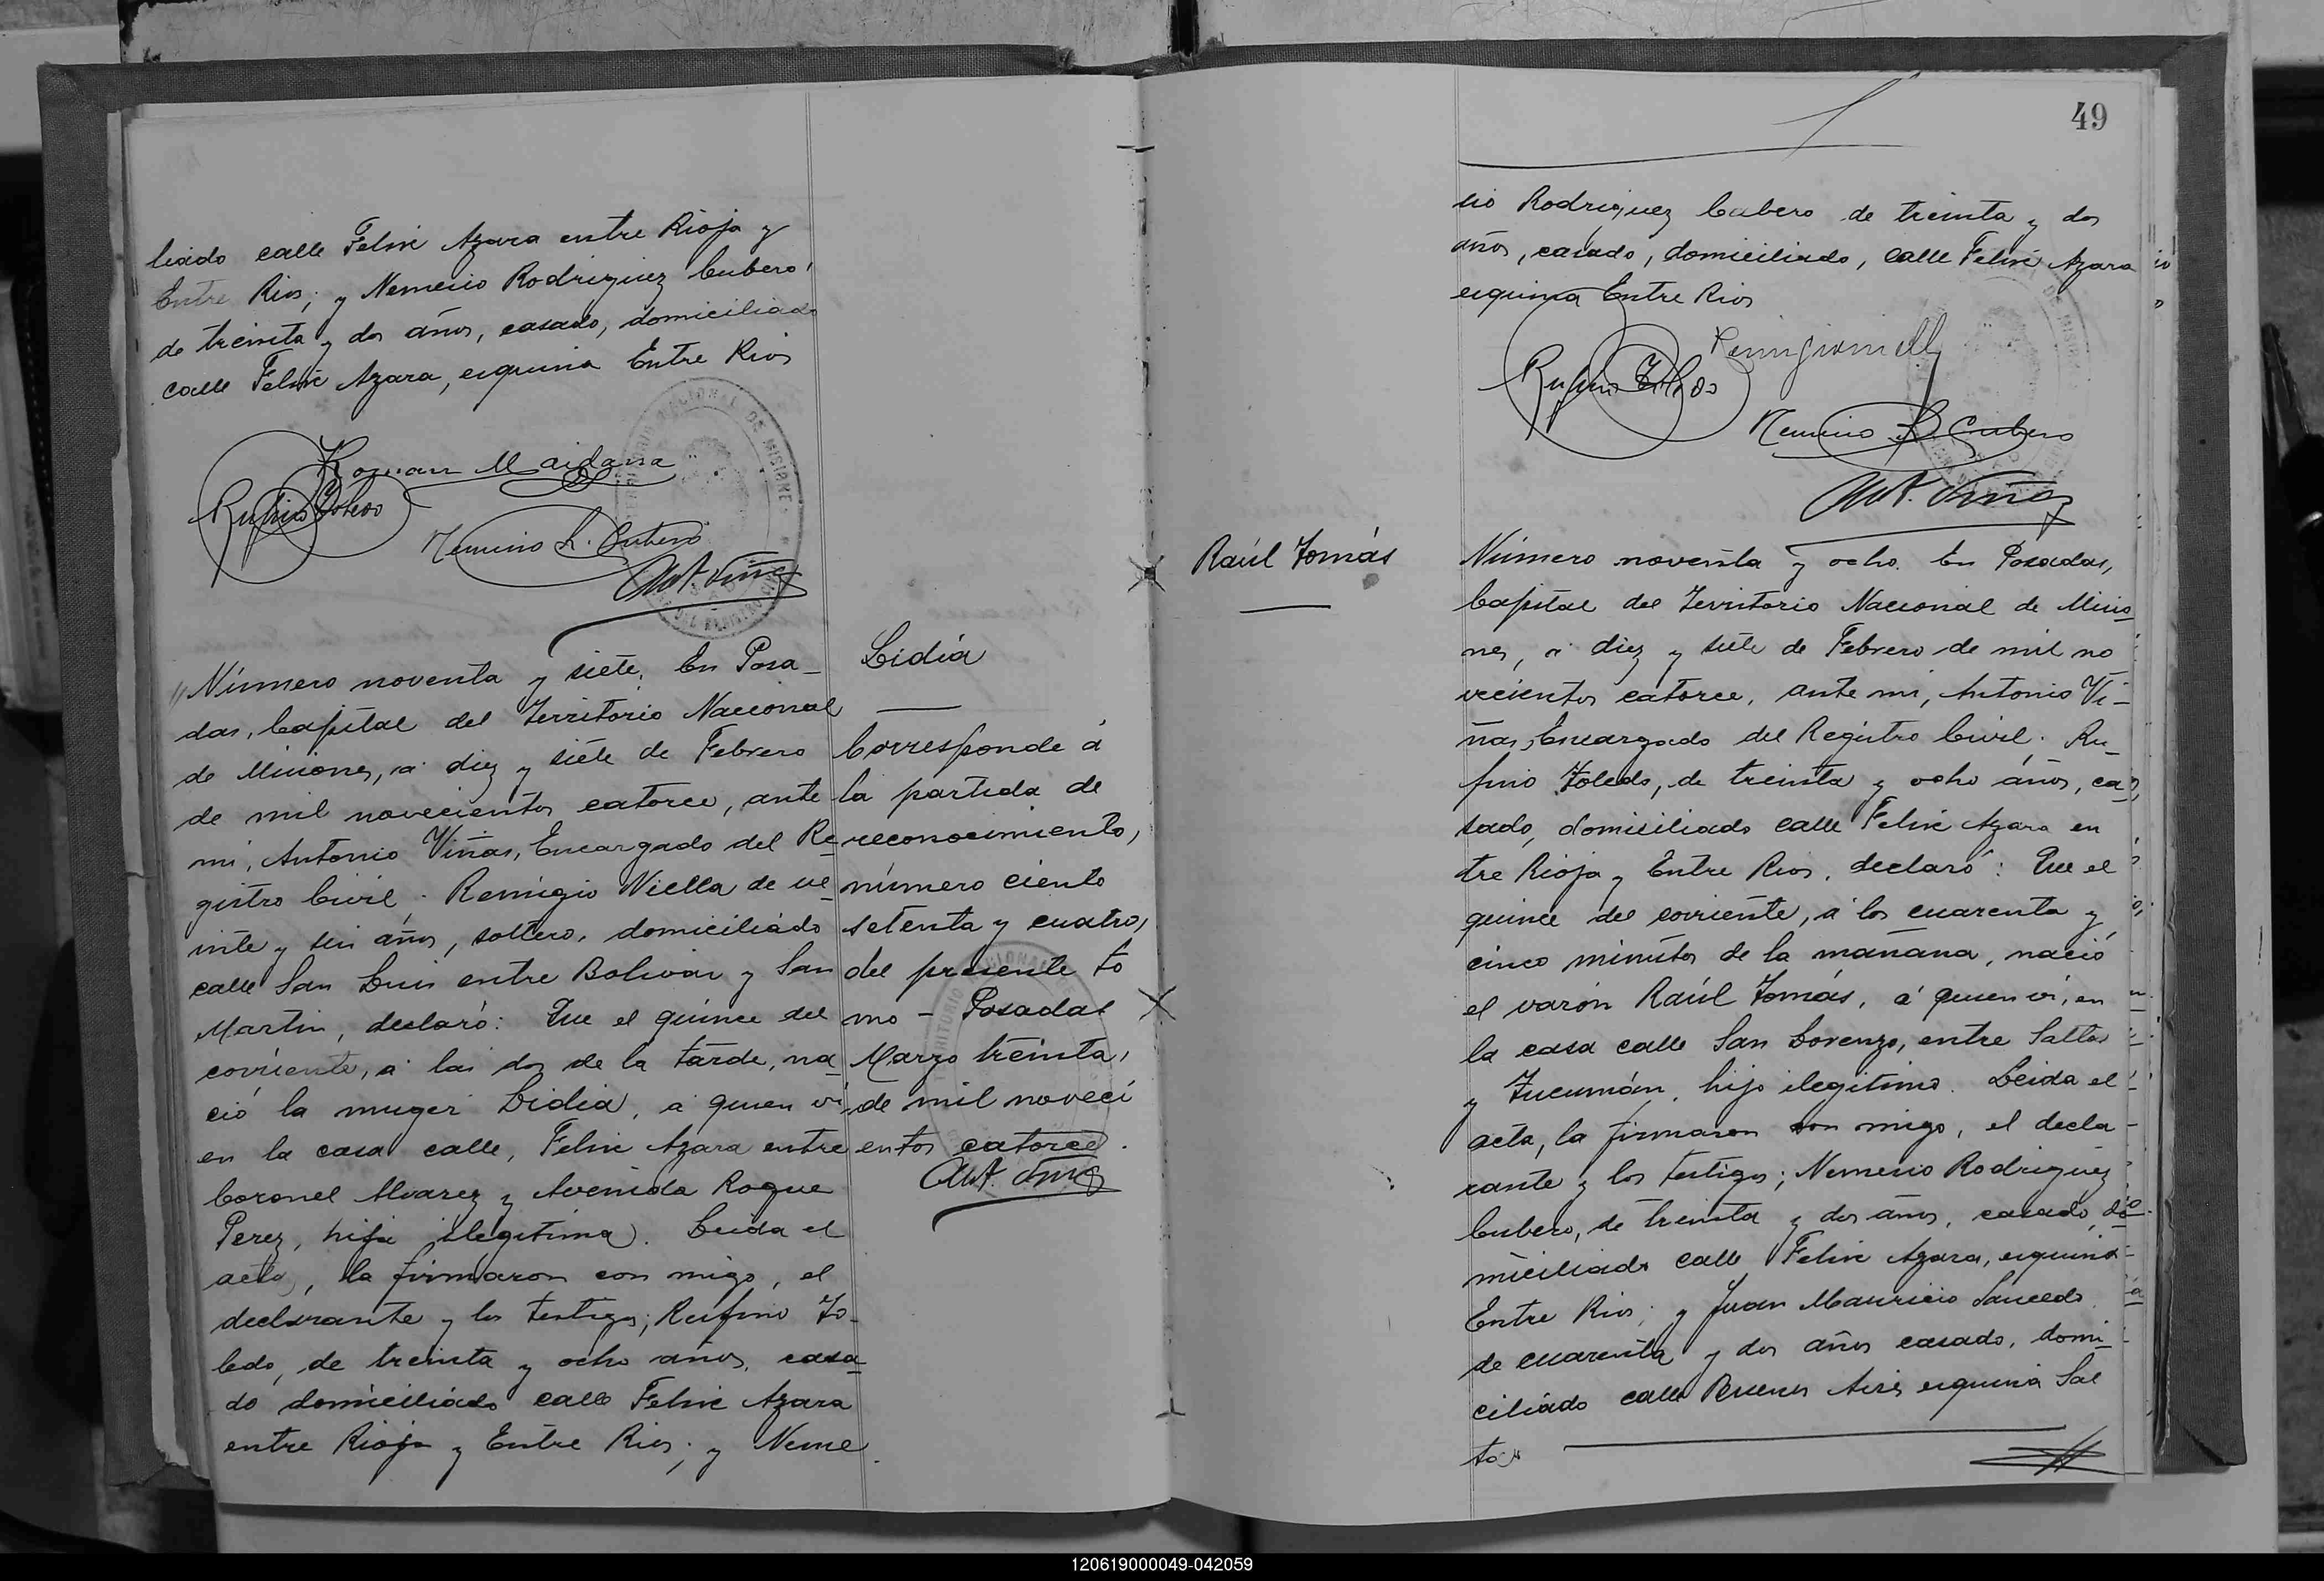 liado calle Felix Azara entre Rioja y
Entre Rios; y Nemesio Rodriguez Cubero,
de treinta y dos años, casado, domiciliado
calle Felix Azara, esquina Entre Rios
Roman Maidana
Rufino Toledo
Nemesio R. Cubero
Ant. Viñas
Número noventa y siete. En Posa-
das, Capital del Territorio Nacional
de Misiones, á diez y siete de Febrero
de mil novecientos catorce, ante
mi, Antonio Viñas, Encargado del Re-
gistro Civil. Remigio Niella de ve-
inte y seis años, soltero, domiciliado
calle San Luis entre Bolivar y San
Martin, declaró: Que el quince del
corriente, á las dos de la tarde, na-
ció la muger Lidia, á quien vi,
en la casa calle, Felix Azara entre
Coronel Alvarez y Avenida Roque
Perez, hija ilegitima. Leida el
acta, la firmaron con migo, el
declarante y los testigos; Rufino To-
ledo, de treinta y ocho años, casa-
do domiciliado calle Felix Azara
entre Rioja y Entre Rios; y Neme
Lidia
Corresponde á
la partida de
reconocimiento,
número ciento
setenta y cuatro,
del presente to
mo - Posadas
Marzo treinta,
de mil noveci
entos catorce.
Ant. Viñas
49
sio Rodriguez Cubero de treinta y dos
años, casado, domiciliado, calle Felix Azara
esquina Entre Rios
Rufino Toledo
Nemesio R. Cubero
Ant. Viñas
Raúl Tomás
Número noventa y ocho. En Posadas,
Capital del Territorio Nacional de Misio
nes, á diez y siete de Febrero de mil no
vecientos catorce, ante mi, Antonio Vi-
ñas, Encargado del Registro Civil. Ru-
fino Toledo, de treinta y ocho años, ca-
sado, domiciliado calle Felix Azara en
tre Rioja y Entre Rios, declaró: Que el
quince del corriente, á los cuarenta y
cinco minutos de la mañana, nació
el varón Raúl Tomás, á quien vi, en
la casa calle San Lorenzo, entre Salta
y Tucumán, hijo ilegitimo. Leida el
acta, la firmaron con migo, el decla-
rante y los testigos; Nemesio Rodriguez
Cubero, de treinta y dos años, casado, do
miciliado calle Felix Azara, esquina
Entre Rios; y Juan Mauricio Saucedo
de cuarenta y dos años casado, domi-
ciliado calle Buenos Aires esquina Sal
ta
120619000049-042059